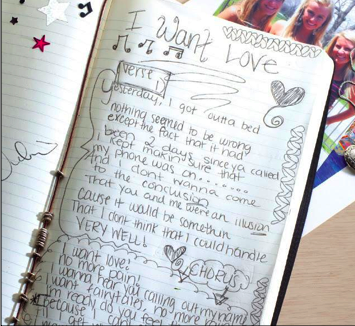 I Want Love
Verse 1
Yesterday, I got outta bed
nothing seemed to be wrong
except the fact that it had
been 2 days since ya called
kept making sure that
my phone was on........
And I dont wanna come
to the conclusion
That you and me were an illusion
cause it would be somethin
That I dont think that I could handle
VERY WELL!
CHORUS
I want love
no more pain
I wanna hear you calling out my name
I want fairytales, no more
I'm ready, do you feel
Because I cant